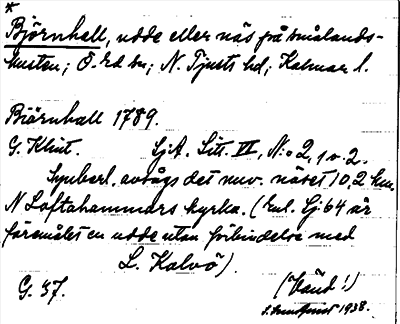 *
Björnhall, udde eller näs på Smålands-
kusten; Ö. Ed sn; N. Tjusts hd; Kalmar l.
Biörnhall 1789.
G. Klint. SjA. Litt. VI, No 2, 1 o. 2.
Synberl. avsågs det nuv. näset 10,2 km.
N Loftahammars kyrka. (Enl. Ej: 64 är
föremålet en udde utan förbindelse med
L. Kalvö).
G. 37. (Vänd!)
S. 1938.